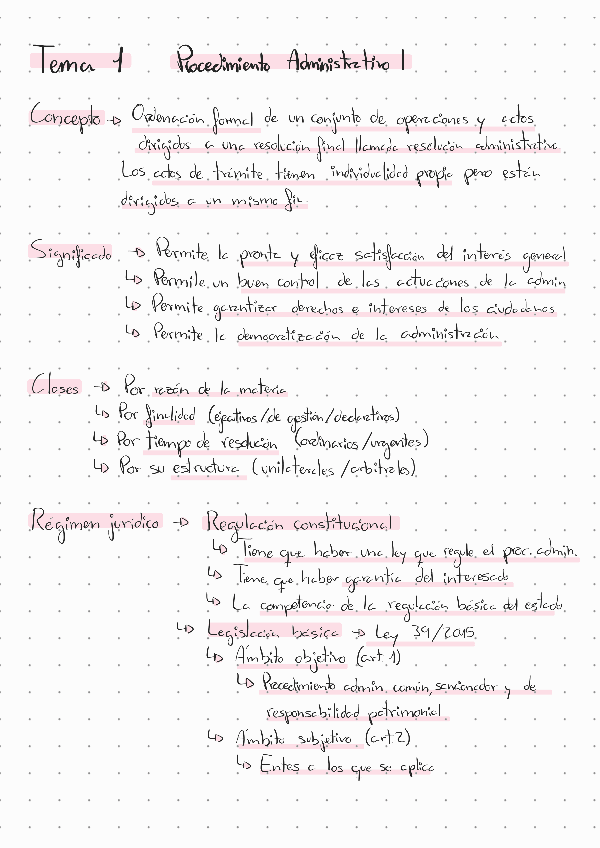 Tema 1 Procedimiento Administrativo I
Concepto → Ordenación formal de un conjunto de operaciones y actos
dirigidos a una resolución final llamada resolución administrativa
Los actos de trámite tienen individualidad propia pero están
dirigidos a un mismo fin.
Significado → Permite la pronta y eficaz satisfacción del interés general
↳ Permite un buen control de las actuaciones de la admin
↳ Permite garantizar derechos e intereses de los ciudadanos
↳ Permite la democratización de la administración
Clases → Por razón de la materia
↳ Por finalidad (ejecutivos/de gestión/declarativos)
↳ Por tiempo de resolución (ordinarios/urgentes)
↳ Por su estructura (unilaterales/arbitrales)
Régimen jurídico → Regulación constitucional
↳ Tiene que haber una ley que regule el proc. admin.
↳ Tiene que haber garantía del interesado
↳ La competencia de la regulación básica del estado
↳ Legislación básica → Ley 39/2015
↳ Ámbito objetivo (art 1)
↳ Procedimiento admin. común, sancionador y de
responsabilidad patrimonial
↳ Ámbito subjetivo (art 2)
↳ Entes a los que se aplica